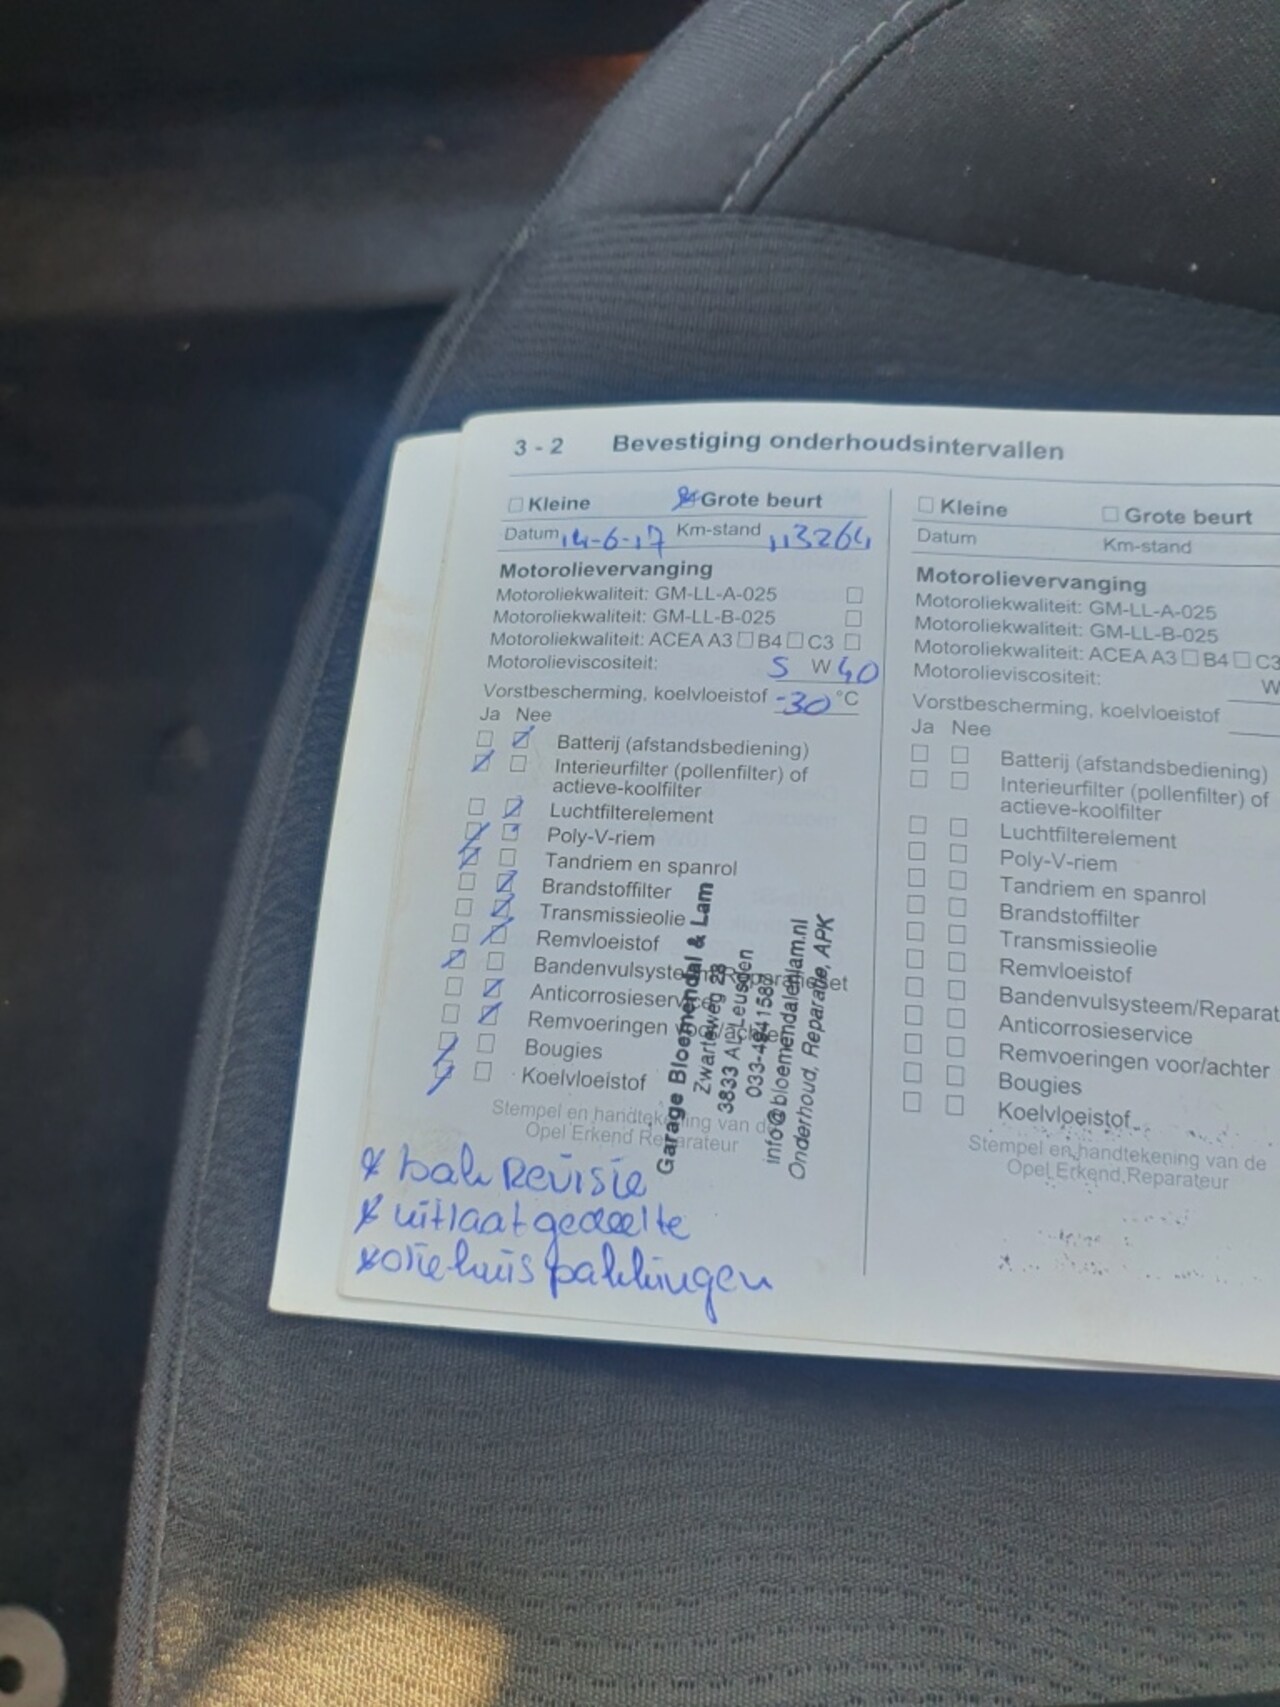 3 - 2 Bevestiging onderhoudsintervallen
Kleine Grote beurt
Datum 14-6-17 Km-stand 113264
Motorolievervanging
Motoroliekwaliteit: GM-LL-A-025
Motoroliekwaliteit: GM-LL-B-025
Motoroliekwaliteit: ACEA A3 B4 C3
Motorolieviscositeit: 5 W 40
Vorstbescherming, koelvloeistof -30 °C
Ja Nee
Batterij (afstandsbediening)
Interieurfilter (pollenfilter) of
actieve-koolfilter
Luchtfilterelement
Poly-V-riem
Tandriem en spanrol
Brandstoffilter
Transmissieolie
Remvloeistof
Bandenvulsysteem/Reparatieset
Anticorrosieservice
Remvoeringen voor/achter
Bougies
Koelvloeistof
Stempel en handtekening van de
Opel Erkend Reparateur
Garage Bloemendal & Lam
Zwarteweg 28
3833 AL Leusden
033-4941587
info@bloemendalenlam.nl
Onderhoud, Reparatie, APK
bak Revisie
uitlaat gedeelte
oliehuis pakkingen
Kleine Grote beurt
Datum Km-stand
Motorolievervanging
Motoroliekwaliteit: GM-LL-A-025
Motoroliekwaliteit: GM-LL-B-025
Motoroliekwaliteit: ACEA A3 B4 C3
Motorolieviscositeit: W
Vorstbescherming, koelvloeistof
Ja Nee
Batterij (afstandsbediening)
Interieurfilter (pollenfilter) of
actieve-koolfilter
Luchtfilterelement
Poly-V-riem
Tandriem en spanrol
Brandstoffilter
Transmissieolie
Remvloeistof
Bandenvulsysteem/Reparat
Anticorrosieservice
Remvoeringen voor/achter
Bougies
Koelvloeistof
Stempel en handtekening van de
Opel Erkend Reparateur